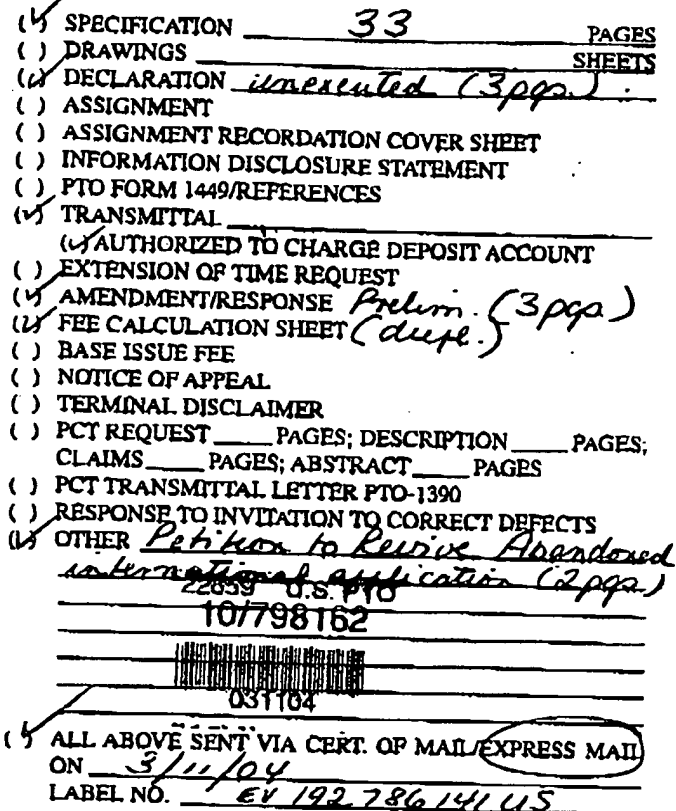 (✓) SPECIFICATION 33 PAGES
( ) DRAWINGS ____ SHEETS
(✓) DECLARATION unexecuted (3pgs.)
( ) ASSIGNMENT
( ) ASSIGNMENT RECORDATION COVER SHEET
( ) INFORMATION DISCLOSURE STATEMENT
( ) PTO FORM 1449/REFERENCES
(✓) TRANSMITTAL ____
(✓) AUTHORIZED TO CHARGE DEPOSIT ACCOUNT
( ) EXTENSION OF TIME REQUEST
(✓) AMENDMENT/RESPONSE Prelim. (3pgs.)
(✓) FEE CALCULATION SHEET (dupl.)
( ) BASE ISSUE FEE
( ) NOTICE OF APPEAL
( ) TERMINAL DISCLAIMER
( ) PCT REQUEST ____ PAGES; DESCRIPTION ____ PAGES;
CLAIMS ____ PAGES; ABSTRACT ____ PAGES
( ) PCT TRANSMITTAL LETTER PTO-1390
( ) RESPONSE TO INVITATION TO CORRECT DEFECTS
(✓) OTHER Petition to Revive Abandoned
international application (2pgs.)
22859 U.S. PTO
10/798162
031104
(✓) ALL ABOVE SENT VIA CERT. OF MAIL/EXPRESS MAIL
ON 3/11/04
LABEL NO. EV 192 786 141 US